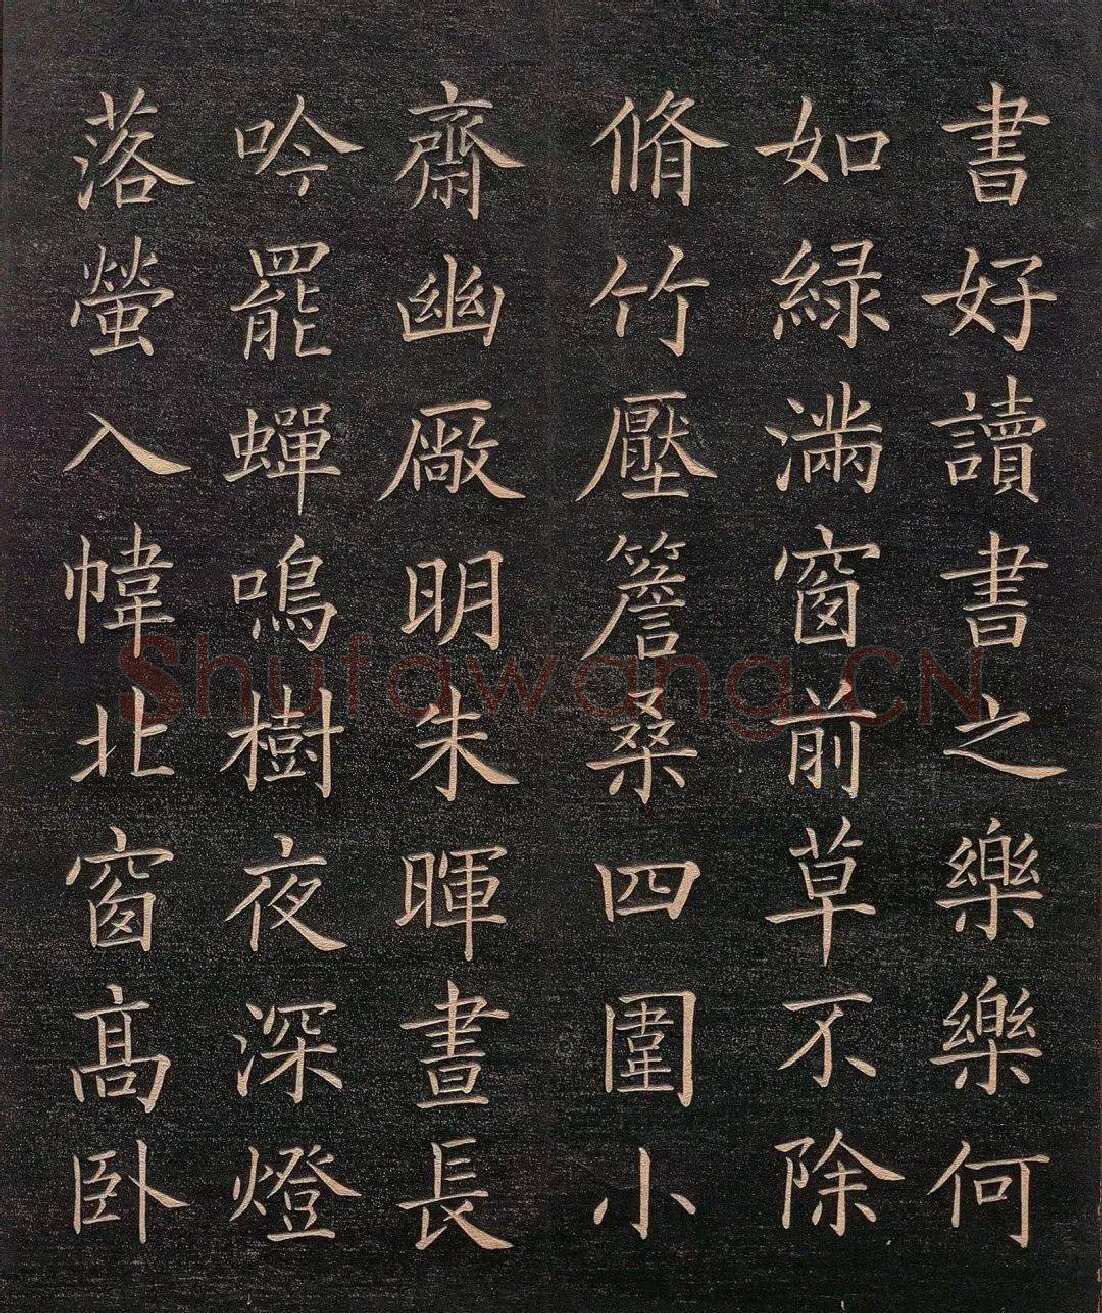 書好讀書之樂樂何
如綠滿窗前草不除
脩竹壓簷桑四圍小
齋幽厰明朱暉晝長
吟罷蟬鳴樹夜深燈
落螢入幃北窗高卧
Shufawang.CN